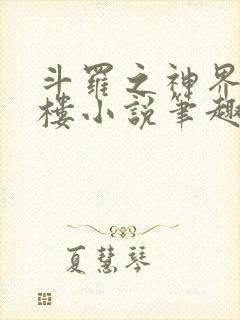 斗羅之神界
樓小說筆趣
夏慧琴